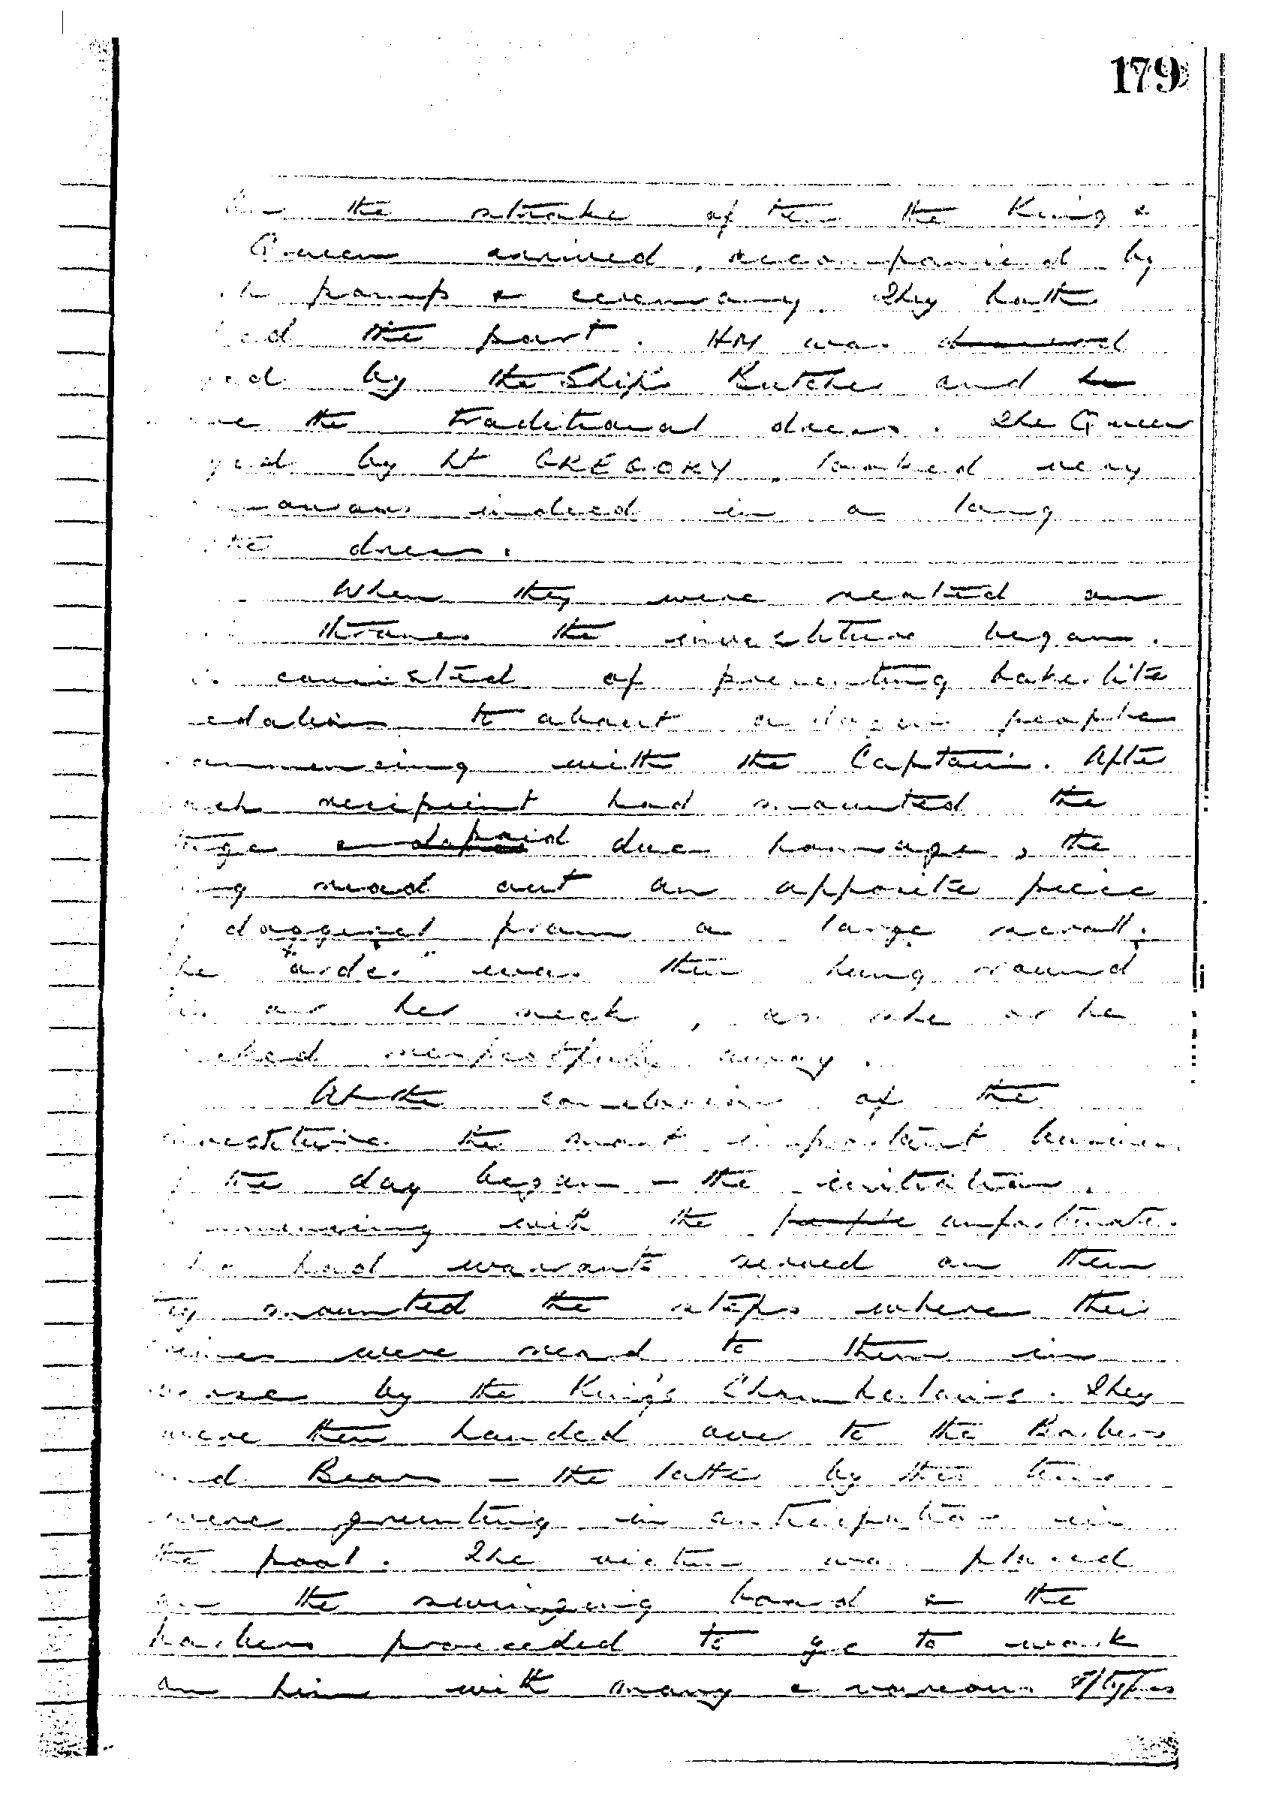 179
On the stroke of ten the King &
Queen arrived, accompanied by
pomp & ceremony. They both
the part. HM was
by the Ship's Butcher and
the traditional dress. The Queen
by Lt GREGORY, looked very
indeed in a long
dress.
When they were seated on
thrones the investiture began.
consisted of presenting bakelite
to about a dozen people
commencing with the Captain. After
each recipient had mounted the
stage & paid due homage, the
King read out an apposite piece
of doggerel from a large scroll.
The "order" was then hung round
his or her neck, as she or he
backed respectfully away.
At the conclusion of the
investiture the most important business
of the day began - the initiation.
Commencing with the people unfortunate
who had warrants served on them
They mounted the steps where their
crimes were read to them in
verse by the King's Chamberlains. They
were then handed over to the Barbers
and Bears - the latter by this time
were grunting in anticipation in
the pool. The victim was placed
on the swinging board & the
barbers proceeded to go to work
on him with many & various types